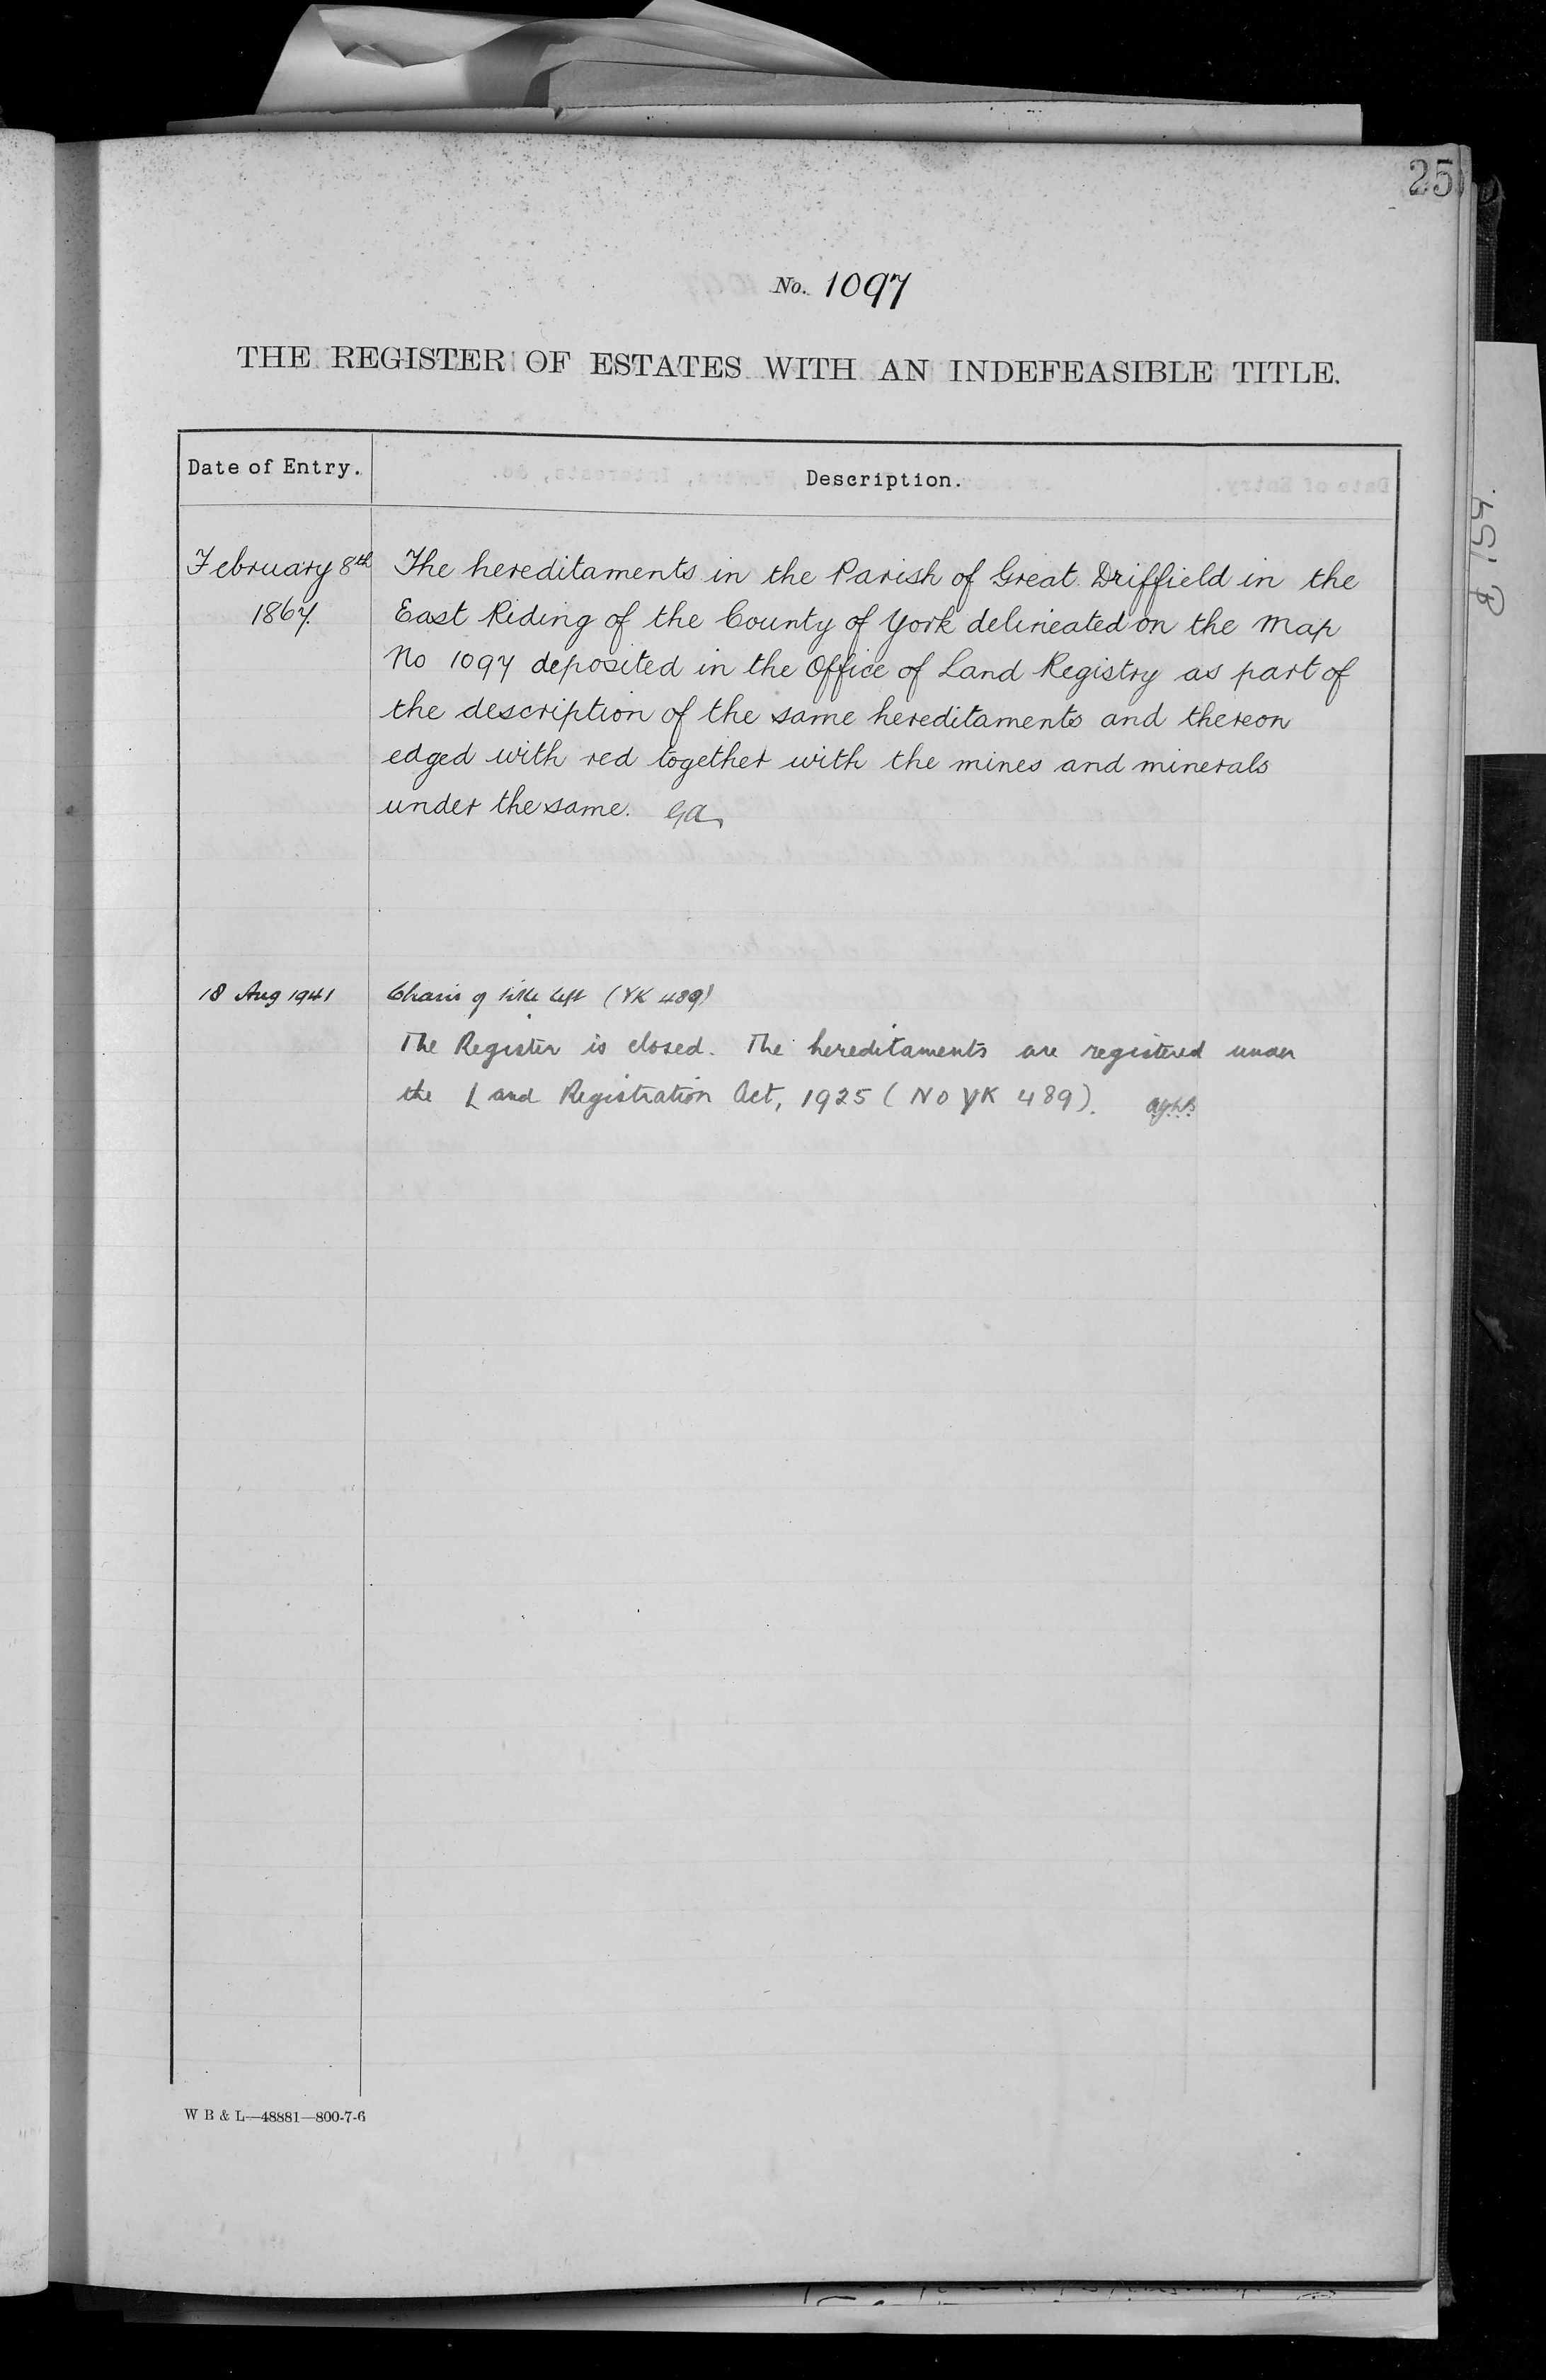 25
No. 1097
THE REGISTER OF ESTATES WITH AN INDEFEASIBLE TITLE.
Date of Entry.
Description.
February 8th
1867.
The hereditaments in the Parish of Great Driffield in the
East Riding of the County of York delineated on the Map
No 1097 deposited in the Office of Land Registry as part of
the description of the same hereditaments and thereon
edged with red together with the mines and minerals
under the same.
18 Aug 1941
of title left (YK 489)
The Register is closed. The hereditaments are registered under
the Land Registration Act, 1925 (No YK 489).
W B & L—48881—800-7-6
159.